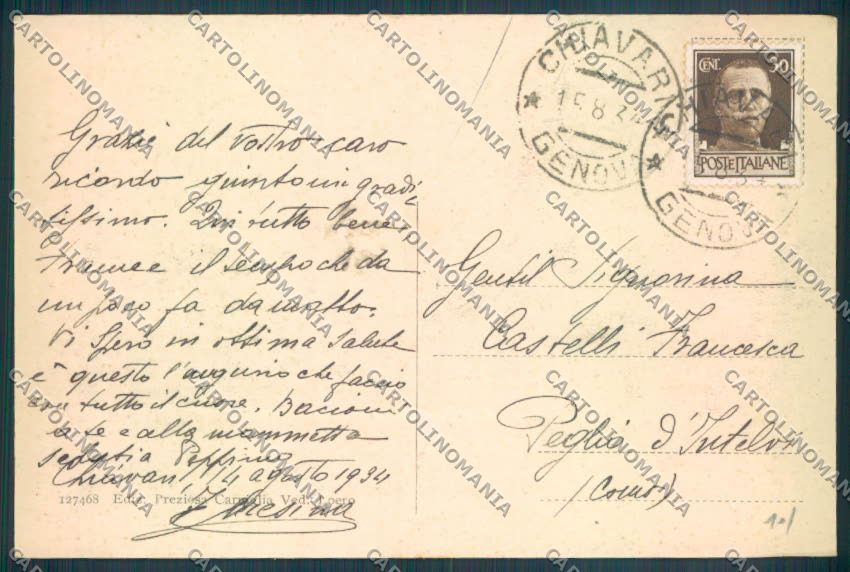 Grazie del vostro caro
ricordo giuntomi gradi
tissimo. Qui tutto bene
il tempo che da
un poco fa da matto.
Vi spero in ottima salute
è questo l'augurio che faccio
con tutto il cuore. Bacioni
a te e alla mammetta
Peppino
Chiavari, 14 agosto 1934
127468 Ediz. Preziosa Carmelia Ved. Loero
CHIAVARI
15.8.34
GENOVA
CENT. 30
POSTE ITALIANE
CHIAVARI
GENOVA
Gentil Signorina
Castelli Francesca
Peglio d'Intelvi
(Como)
CARTOLINOMANIA